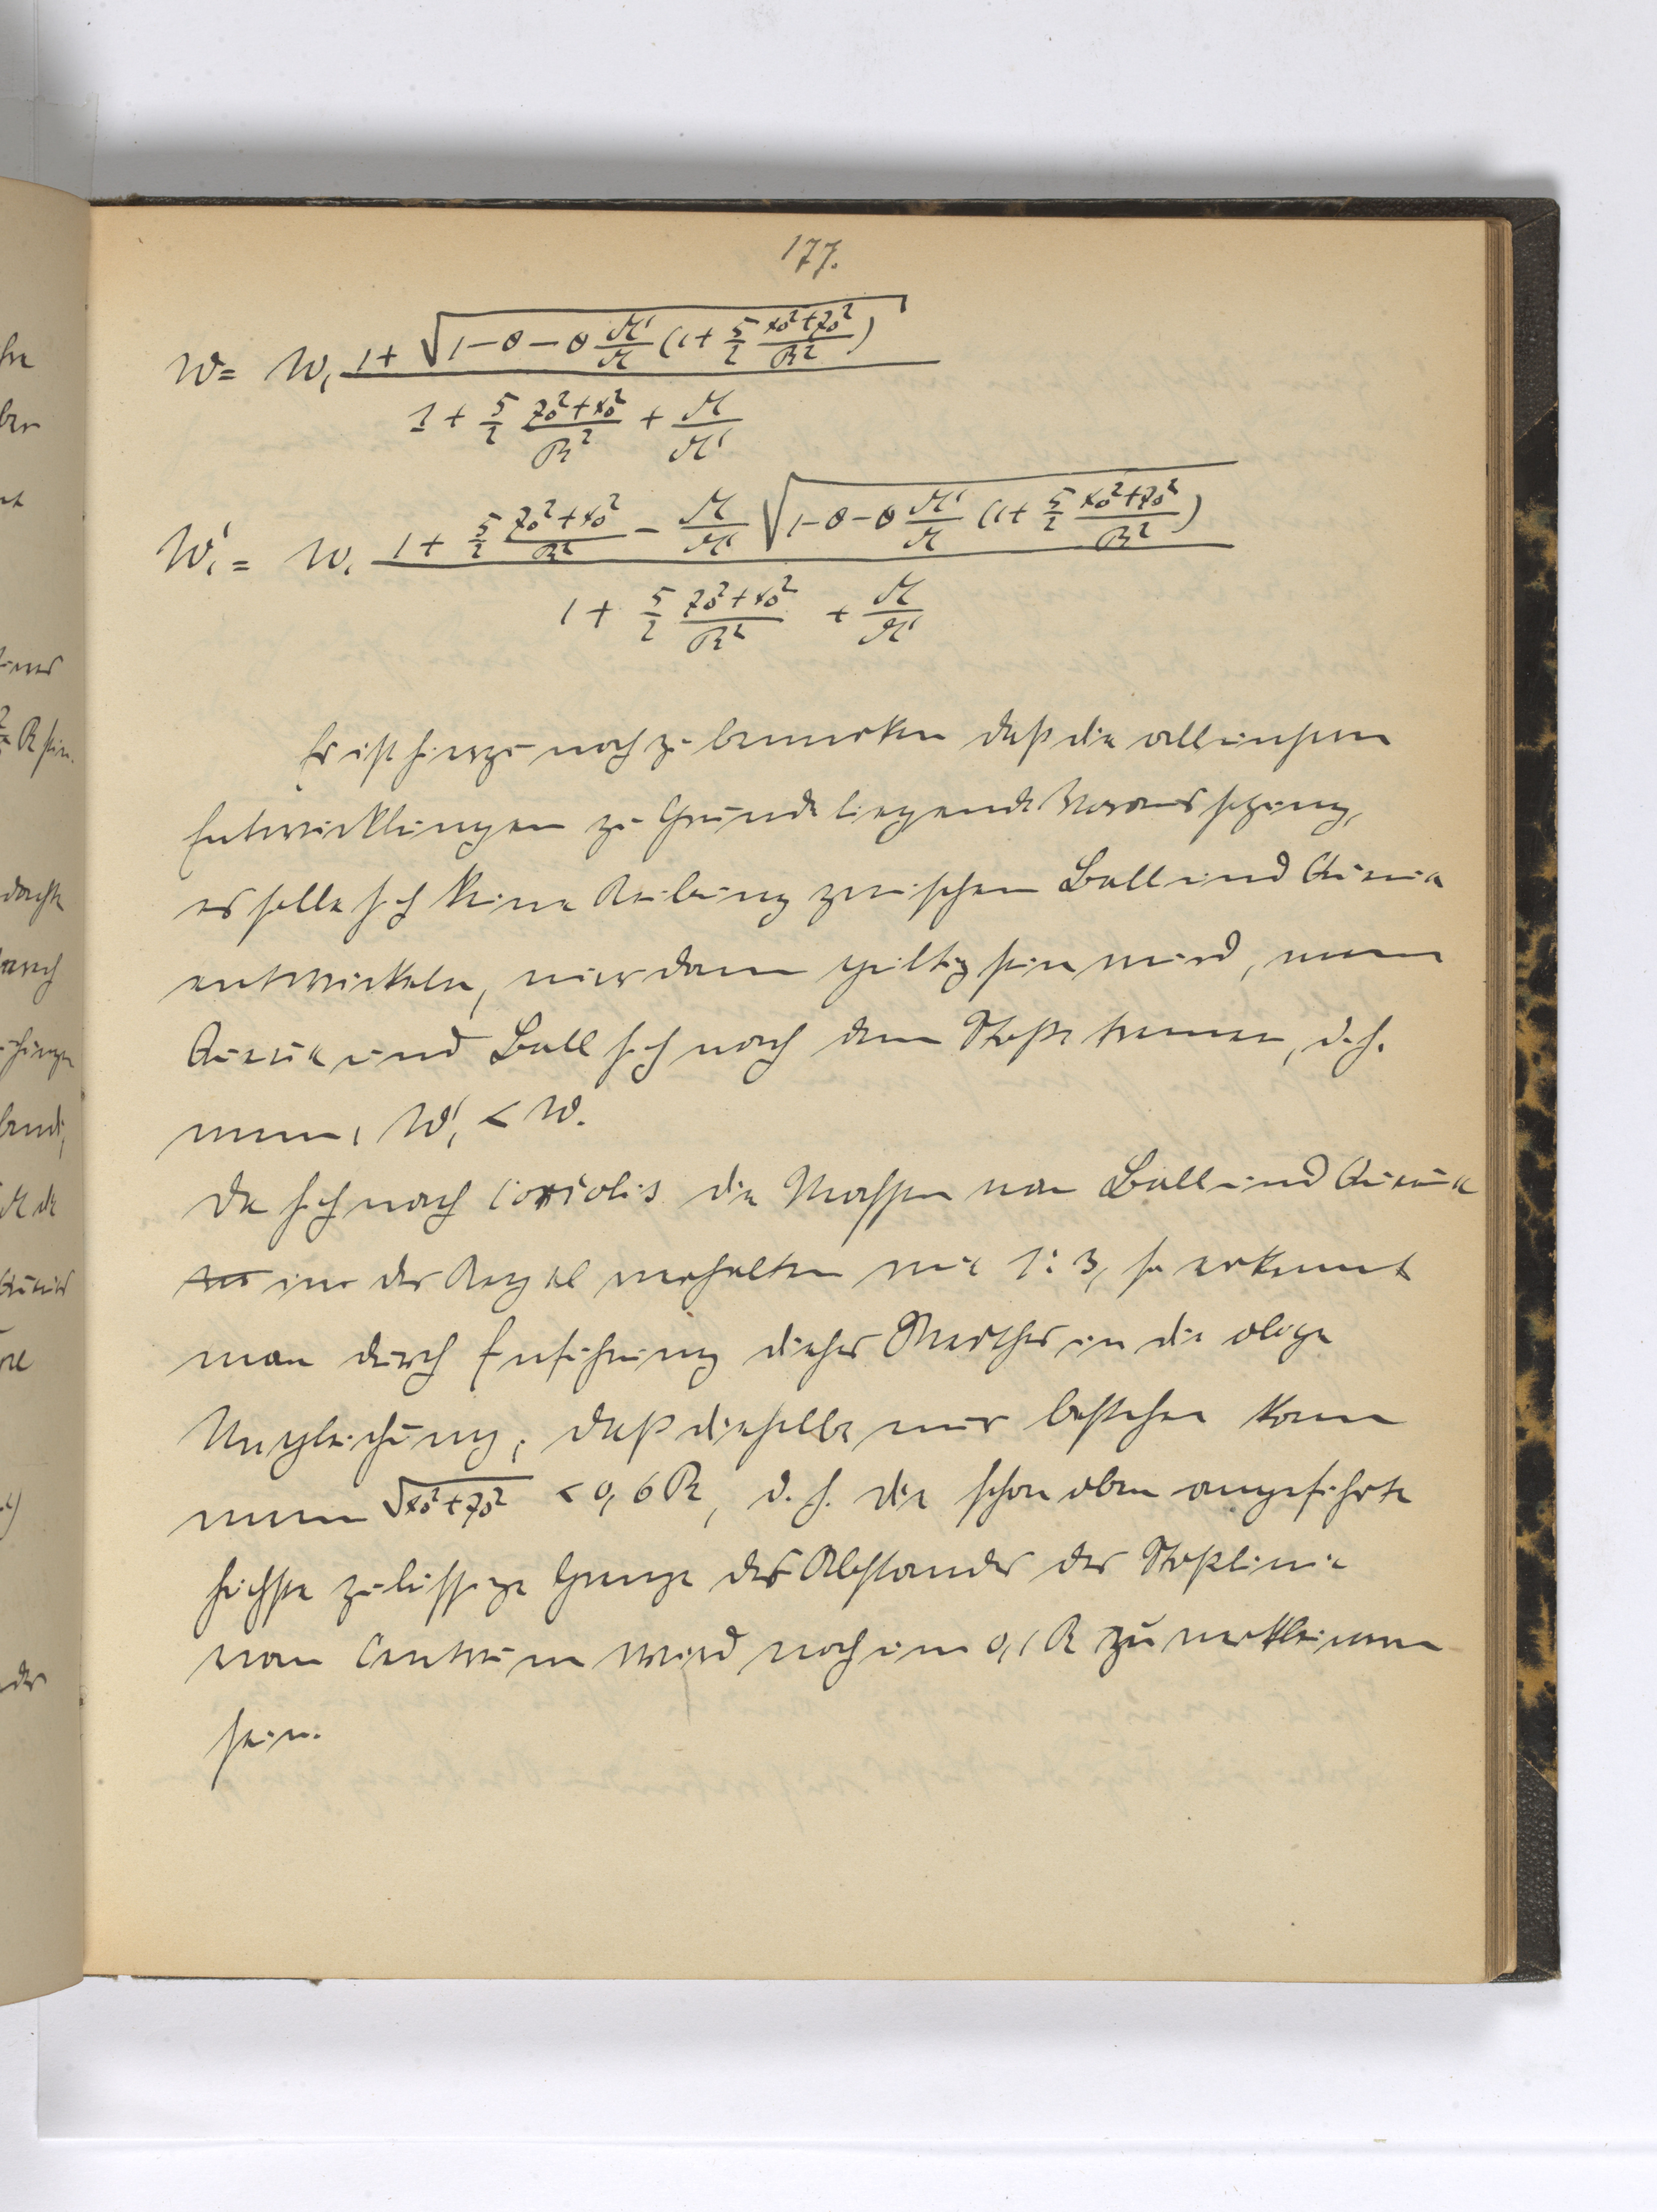 177.
W = W₁ (1 + √(1 − θ − θ M'/M (1 + 5/2 (x₀² + z₀²)/R²))) / (1 + 5/2 (z₀² + x₀²)/R² + M/M')
W'₁ = W₁ (1 + 5/2 (z₀² + x₀²)/R² − M/M' √(1 − θ − θ M'/M (1 + 5/2 (x₀² + z₀²)/R²))) / (1 + 5/2 (z₀² + x₀²)/R² + M/M')
Es ist hierzu noch zu bemerken daß die all diesen
Entwicklungen zu Grunde liegende Voraussetzung,
es solle sich keine Reibung zwischen Ball und Queue
entwickeln, nur dann giltig sein wird, wenn
Queue und Ball sich nach dem Stoße trennen, d. h.
wenn, W'₁ < W.
Da sich nach Coriolis die Massen von Ball und Queue
in der Regel verhalten wie 1:3, so erkennt
man durch Einführung dieses Werthes in die obige
Ungleichung, daß dieselbe nur bestehen kann
wenn √x₀²+z₀² < 0,6 R, d. h. die schon oben angeführte
höchste zulässige Grenze des Abstandes der Stoßlinie
vom Centrum wird noch um 0,1 R zu verkleinern
sein.
R sein.